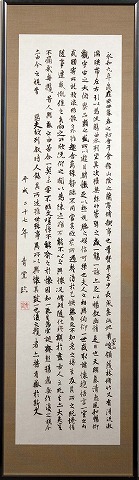 永和九年歲在癸丑暮春之初會于會稽山陰之蘭亭脩禊事也群賢畢至少長咸集此地有崇山峻領茂林脩竹又有清流激
湍映帶左右引以為流觴曲水列坐其次雖無絲竹管弦之盛一觴一詠亦足以暢敘幽情是日也天朗氣清惠風和暢仰
觀宇宙之大俯察品類之盛所以遊目騁懷足以極視聽之娛信可樂也夫人之相與俯仰一世或取諸懷抱悟言一室之內
或因寄所託放浪形骸之外雖趣舍萬殊靜躁不同當其欣於所遇暫得於己快然自足不知老之將至及其所之既惓情
隨事遷感慨係之矣向之所欣俛仰之間以為陳迹猶不能不以之興懷況脩短隨化終期於盡古人云死生亦大矣豈
不痛哉每攬昔人興感之由若合一契未嘗不臨文嗟悼不能喻之於懷固知一死生為虛誕齊彭殤為妄作後之視今
亦由今之視昔
悲夫故列敘時人錄其所述雖世殊事異所以興懷其致一也後之攬者亦將有感於斯文
平成二十年